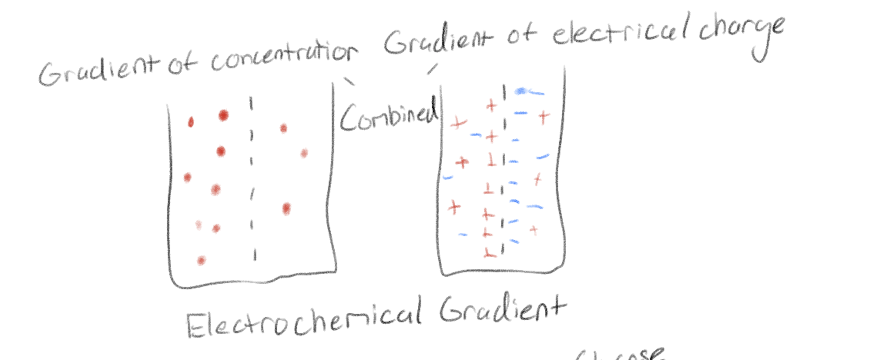 Gradient of concentration
Gradient of electrical charge
Combined
Electrochemical Gradient